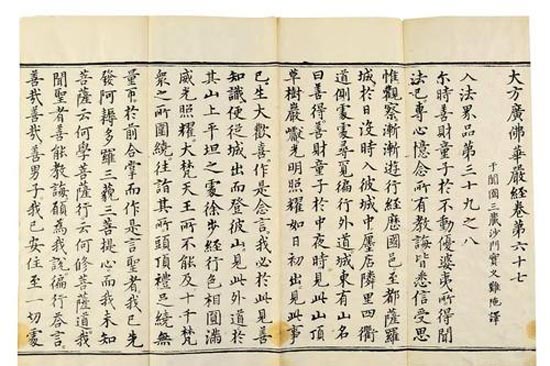 大方廣佛華嚴經卷第六十七
于闐國三藏沙門實叉難陀譯
入法界品第三十九之八
尒時善財童子於不動優婆夷所得聞
法已專心憶念所有教誨皆悉信受思
惟觀察漸漸遊行經歷國邑至都薩羅
城於日沒時入彼城中廛店隣里四衢
道側處處尋覓徧行外道城東有山名
曰善得善財童子於中夜時見此山頂
草樹巖巘光明照耀如日初出見此事
已生大歡喜作是念言我必於此見善
知識便從城出而登彼山見此外道於
其山上平坦之處徐步經行色相圓滿
威光照耀大梵天王所不能及十千梵
衆之所圍繞往詣其所頭頂禮足繞無
量帀於前合掌而作是言聖者我已先
發阿耨多羅三藐三菩提心而我未知
菩薩云何學菩薩行云何修菩薩道我
聞聖者善能教誨願爲我說徧行荅言
善哉善哉善男子我已安住至一切處